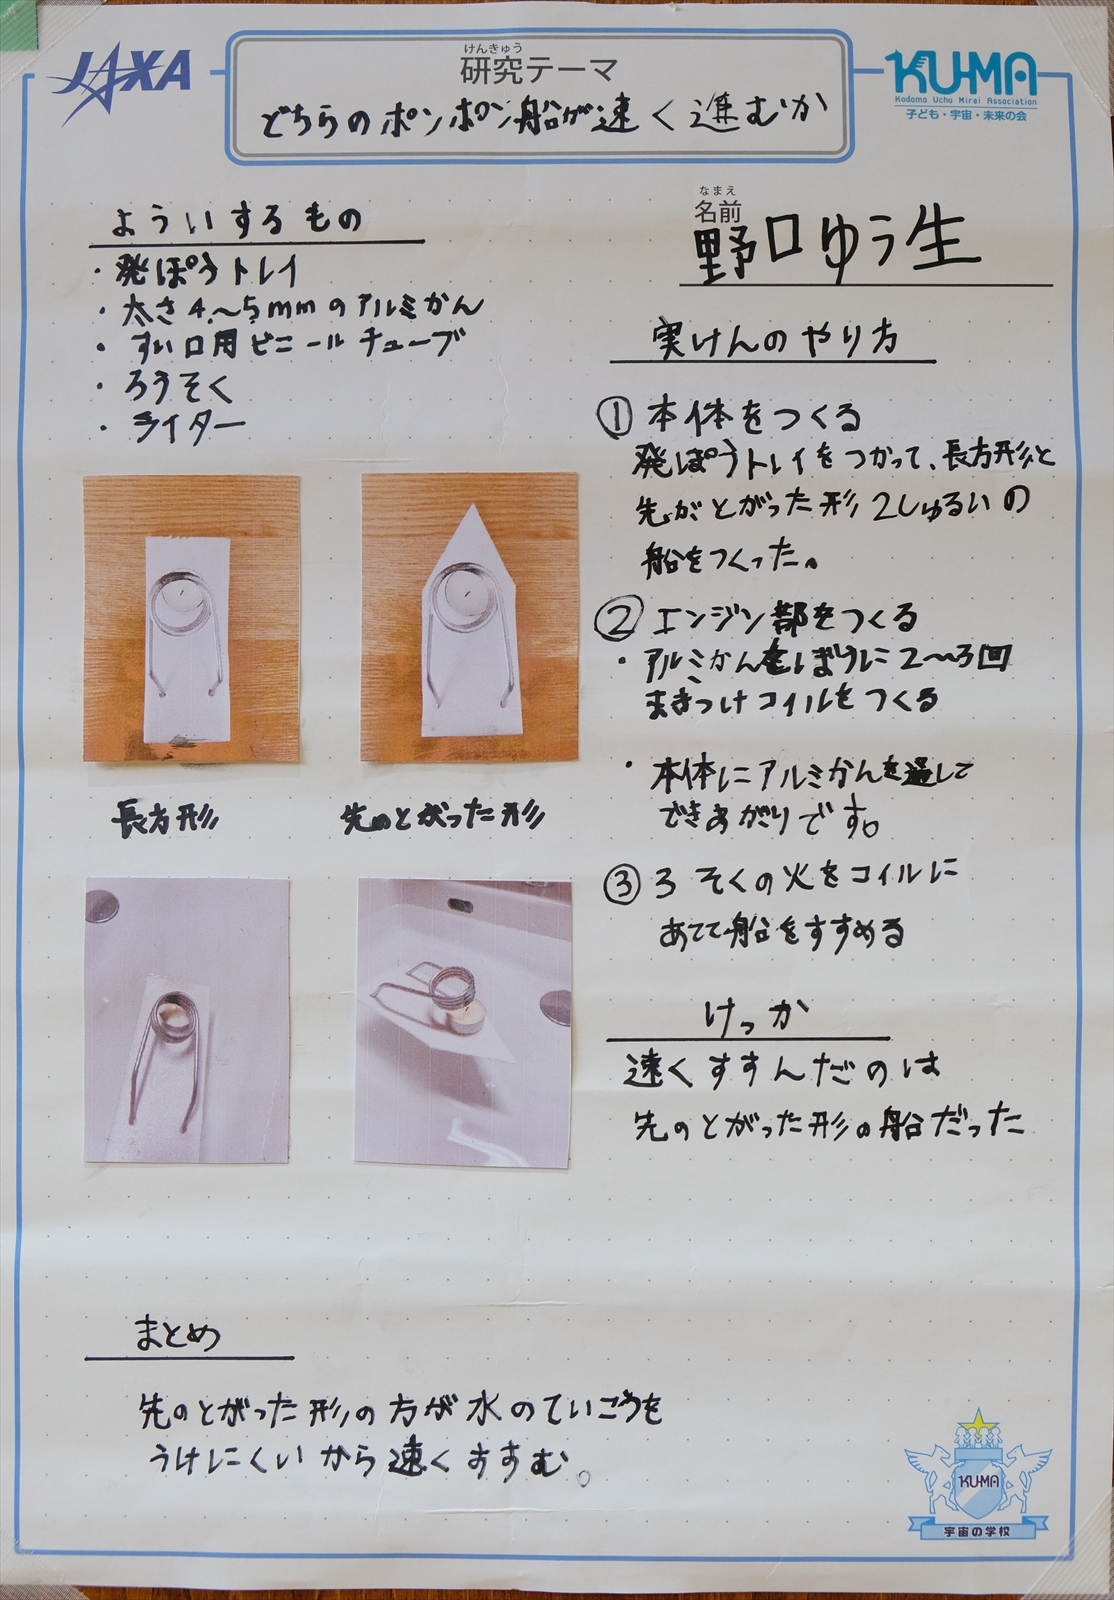 JAXA
けんきゅう
研究テーマ
どちらのポンポン船が速く進むか
KU-MA
Kodomo Uchu Mirai Association
子ども・宇宙・未来の会
なまえ
名前
野口ゆう生
よういするもの
・発ぽうトレイ
・太さ4〜5mmのアルミかん
・すい口用ビニールチューブ
・ろうそく
・ライター
長方形
先のとがった形
実けんのやり方
①本体をつくる
発ぽうトレイをつかって、長方形と
先がとがった形2しゅるいの
船をつくった。
②エンジン部をつくる
・アルミかんをぼうに2〜3回
まきつけコイルをつくる
・本体にアルミかんを通して
できあがりです。
③ろ そくの火をコイルに
あてて船をすすめる
けっか
速くすすんだのは
先のとがった形の船だった
まとめ
先のとがった形の方が水のていごうを
うけにくいから速くすすむ。
KU-MA
宇宙の学校